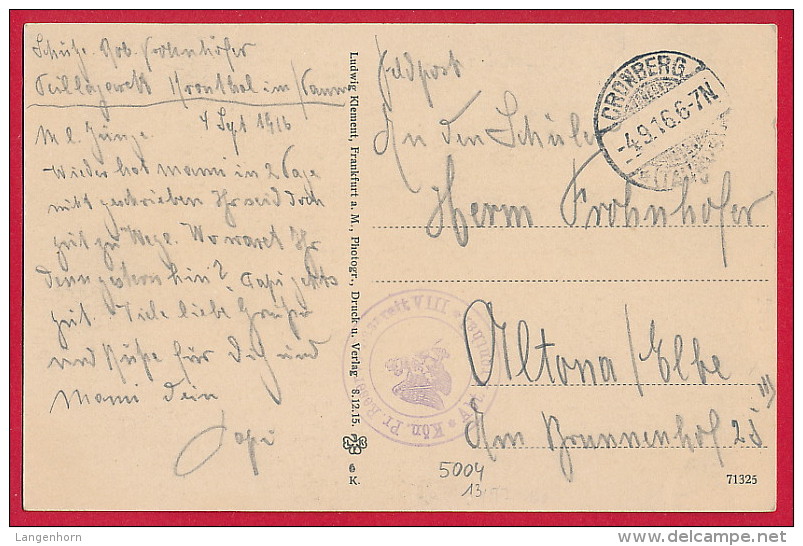 Schütz. Rob. Frohnhöfer
Kronthal im Taunus
4 Sept 1916
M l. Junge
Wieder hat Mami in 2 Tage
nicht geschrieben Ihr seid doch
gut zu Wege. Wo waret Ihr
denn gestern hin? Papi geht's
gut. Viele liebe Grüße
und Küße für Dich und
Mami Dein
Papi
Ludwig Klement, Frankfurt a. M., Photogr., Druck u. Verlag 8.12.15.
6
K.
Feldpost
An den Schüler
Herm Frohnhöfer
Altona/Elbe
Am Brunnenhof 25 III
CRONBERG
-4.9.16.6-7N
(TAUNUS)
Kön. Pr.
VIII
5004
71325
Langenhorn
www.delcampe.net